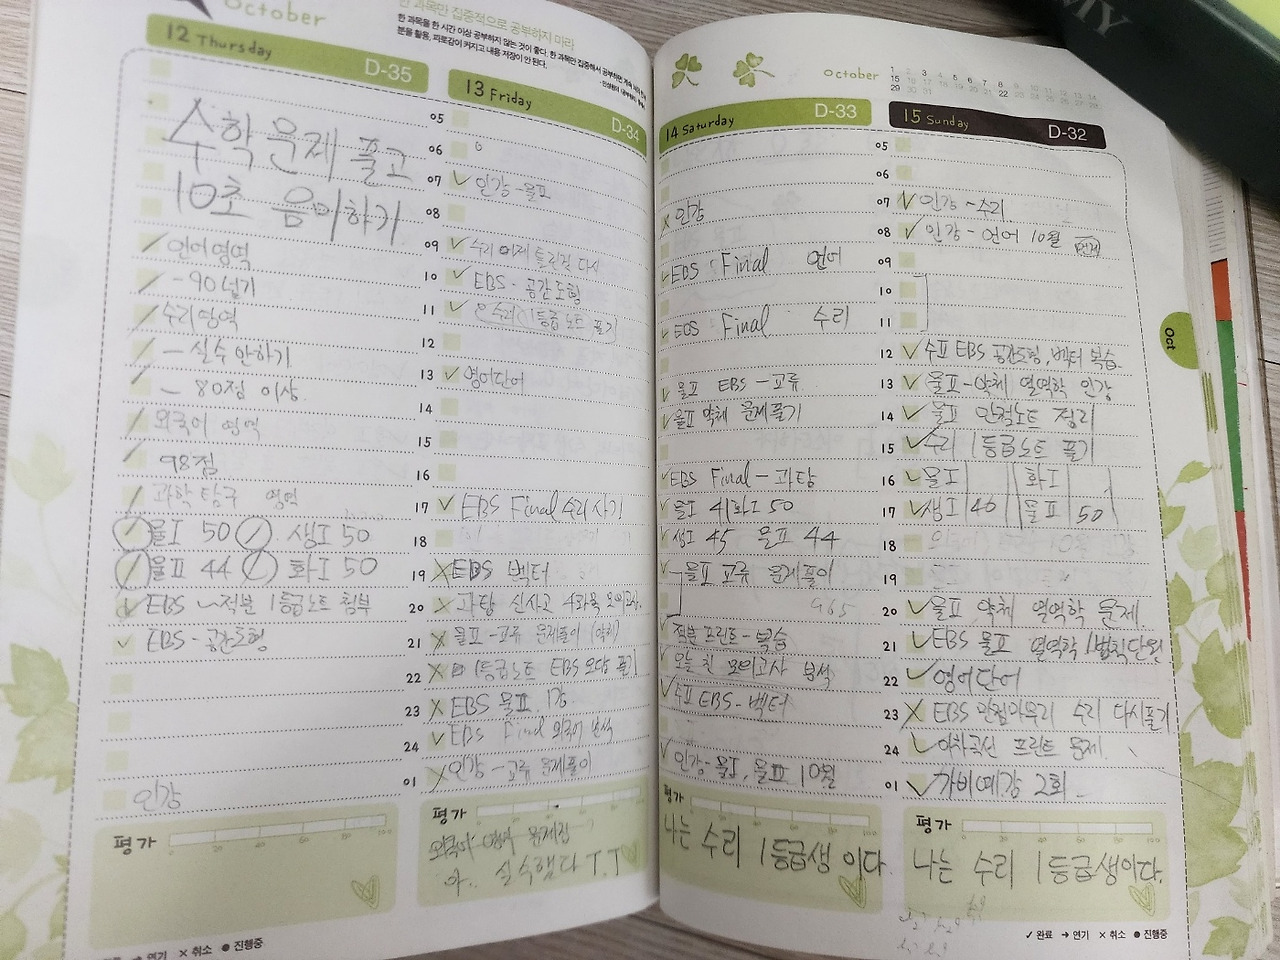 October
한 과목만 집중적으로 공부하지 마라
한 과목을 한 시간 이상 공부하지 않는 것이 좋다. 한 과목만 집중해서 공부하면
분을 활용, 피로감이 커지고 내용 저장이 안 된다.
12 Thursday
D-35
수학문제 풀고
10초 음미하기
언어영역
-90넘기
수리영역
- 실수안하기
- 80점 이상
외국어 영역
98점
과학탐구 영역
물I 50 생I 50
물II 44 화I 50
EBS 적분 1등급노트 첨부
EBS-공간도형
인강
평가
13 Friday
D-34
05
06
07 인강-물II
08
09 수리 어제 틀린것 다시
10 EBS-공간도형
11 수리 1등급노트 풀기
12
13 영어단어
14
15
16
17 EBS Final 수리 사기
18
19 EBS 벡터
20 과탐 신사고 4과목 모의고사
21 물II-교류 문제풀이
22 1등급노트 EBS 오답 풀기
23 EBS 물II 1강
24 EBS Final 외국어 분석
01 인강-교류 문제풀이
평가
외국어 영역 문제집
아.. 실수했다 T.T
October
14 Saturday
D-33
인강
EBS Final 언어
EBS Final 수리
물II EBS-교류
물II 약체 문제풀기
EBS Final-과탐
물I 41 화I 50
생I 45 물II 44
물II 교류 문제풀이
965
적분 프린트-복습
오늘 친 모의고사 분석
수II EBS-벡터
인강-물I, 물II 10월
평가
나는 수리 1등급생 이다.
15 Sunday
D-32
05
06
07 인강-수리
08 인강-언어 10월
09
10
11
12 수II EBS 공간도형, 벡터 복습
13 물II-약체 열역학 인강
14 물II 만점노트 정리
15 수리 1등급노트 풀기
16 물I 화I
17 생I 40 물II 50
18
19
20 물II 약체 열역학 문제
21 EBS 물II 열역학 1법칙단원
22 영어단어
23 EBS 만점마무리 수리 다시풀기
24 프린트 문제
01 2회
평가
나는 수리 1등급생이다.
Oct
→ 연기 × 취소 ● 진행중
✓ 완료 → 연기 × 취소 ● 진행중